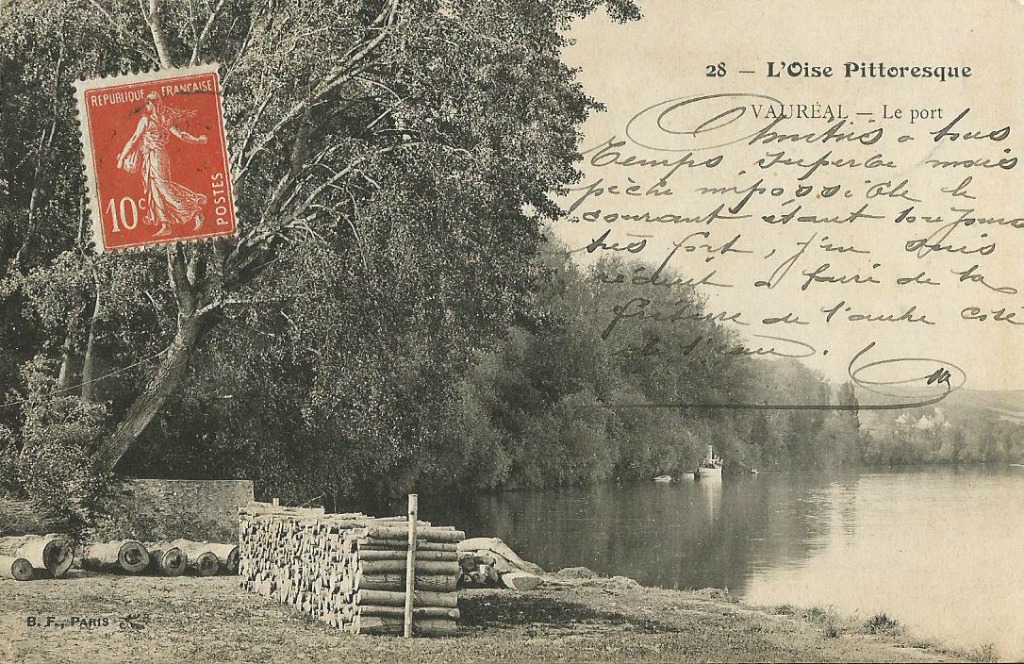 28 — L'Oise Pittoresque
VAURÉAL — Le port
REPUBLIQUE FRANÇAISE
10c
POSTES
Amitiés à tous
Temps superbe mais
pêche impossible le
courant étant toujours
très fort, j'en suis
réduit à faire de la
friture de l'autre coté
de l'eau.
B. F., PARIS